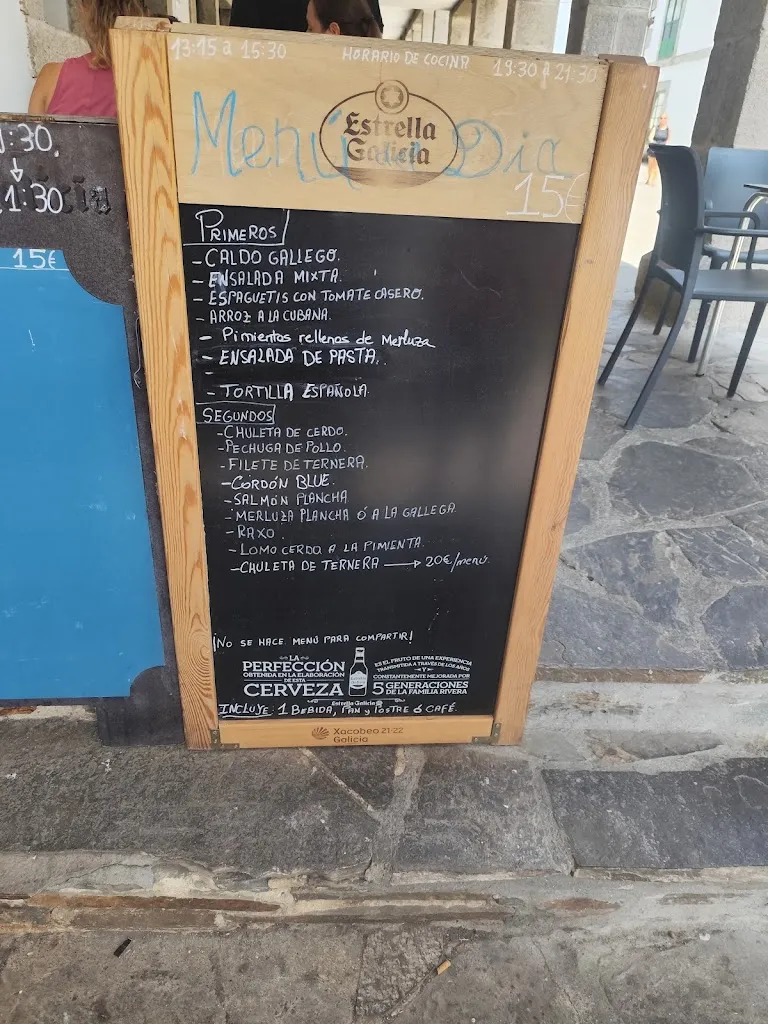 1:30.
1:30
15€
13:15 a 15:30
HORARIO DE COCINA
19:30 a 21:30
Menú Dia
Estrella
Galicia
15€
PRIMEROS
- CALDO GALLEGO.
- ENSALADA MIXTA.
- ESPAGUETIS CON TOMATE CASERO.
- ARROZ A LA CUBANA.
- Pimientos rellenos de Merluza
- ENSALADA DE PASTA.
-
- TORTILLA ESPAÑOLA.
SEGUNDOS
- CHULETA DE CERDO.
- PECHUGA DE POLLO.
- FILETE DE TERNERA.
- CORDÓN BLUE.
- SALMÓN PLANCHA.
- MERLUZA PLANCHA Ó A LA GALLEGA.
- RAXO.
- LOMO CERDO A LA PIMIENTA.
- CHULETA DE TERNERA → 20€/menú.
¡NO SE HACE MENÚ PARA COMPARTIR!
LA
PERFECCIÓN
OBTENIDA EN LA ELABORACIÓN
DE ESTA
CERVEZA
ES EL FRUTO DE UNA EXPERIENCIA
TRANSMITIDA A TRAVÉS DE LOS AÑOS
Y
CONSTANTEMENTE MEJORADA POR
5 GENERACIONES
DE LA FAMILIA RIVERA
Estrella Galicia
INCLUYE: 1 BEBIDA, PAN y POSTRE ó CAFÉ.
Xacobeo 21·22
Galicia